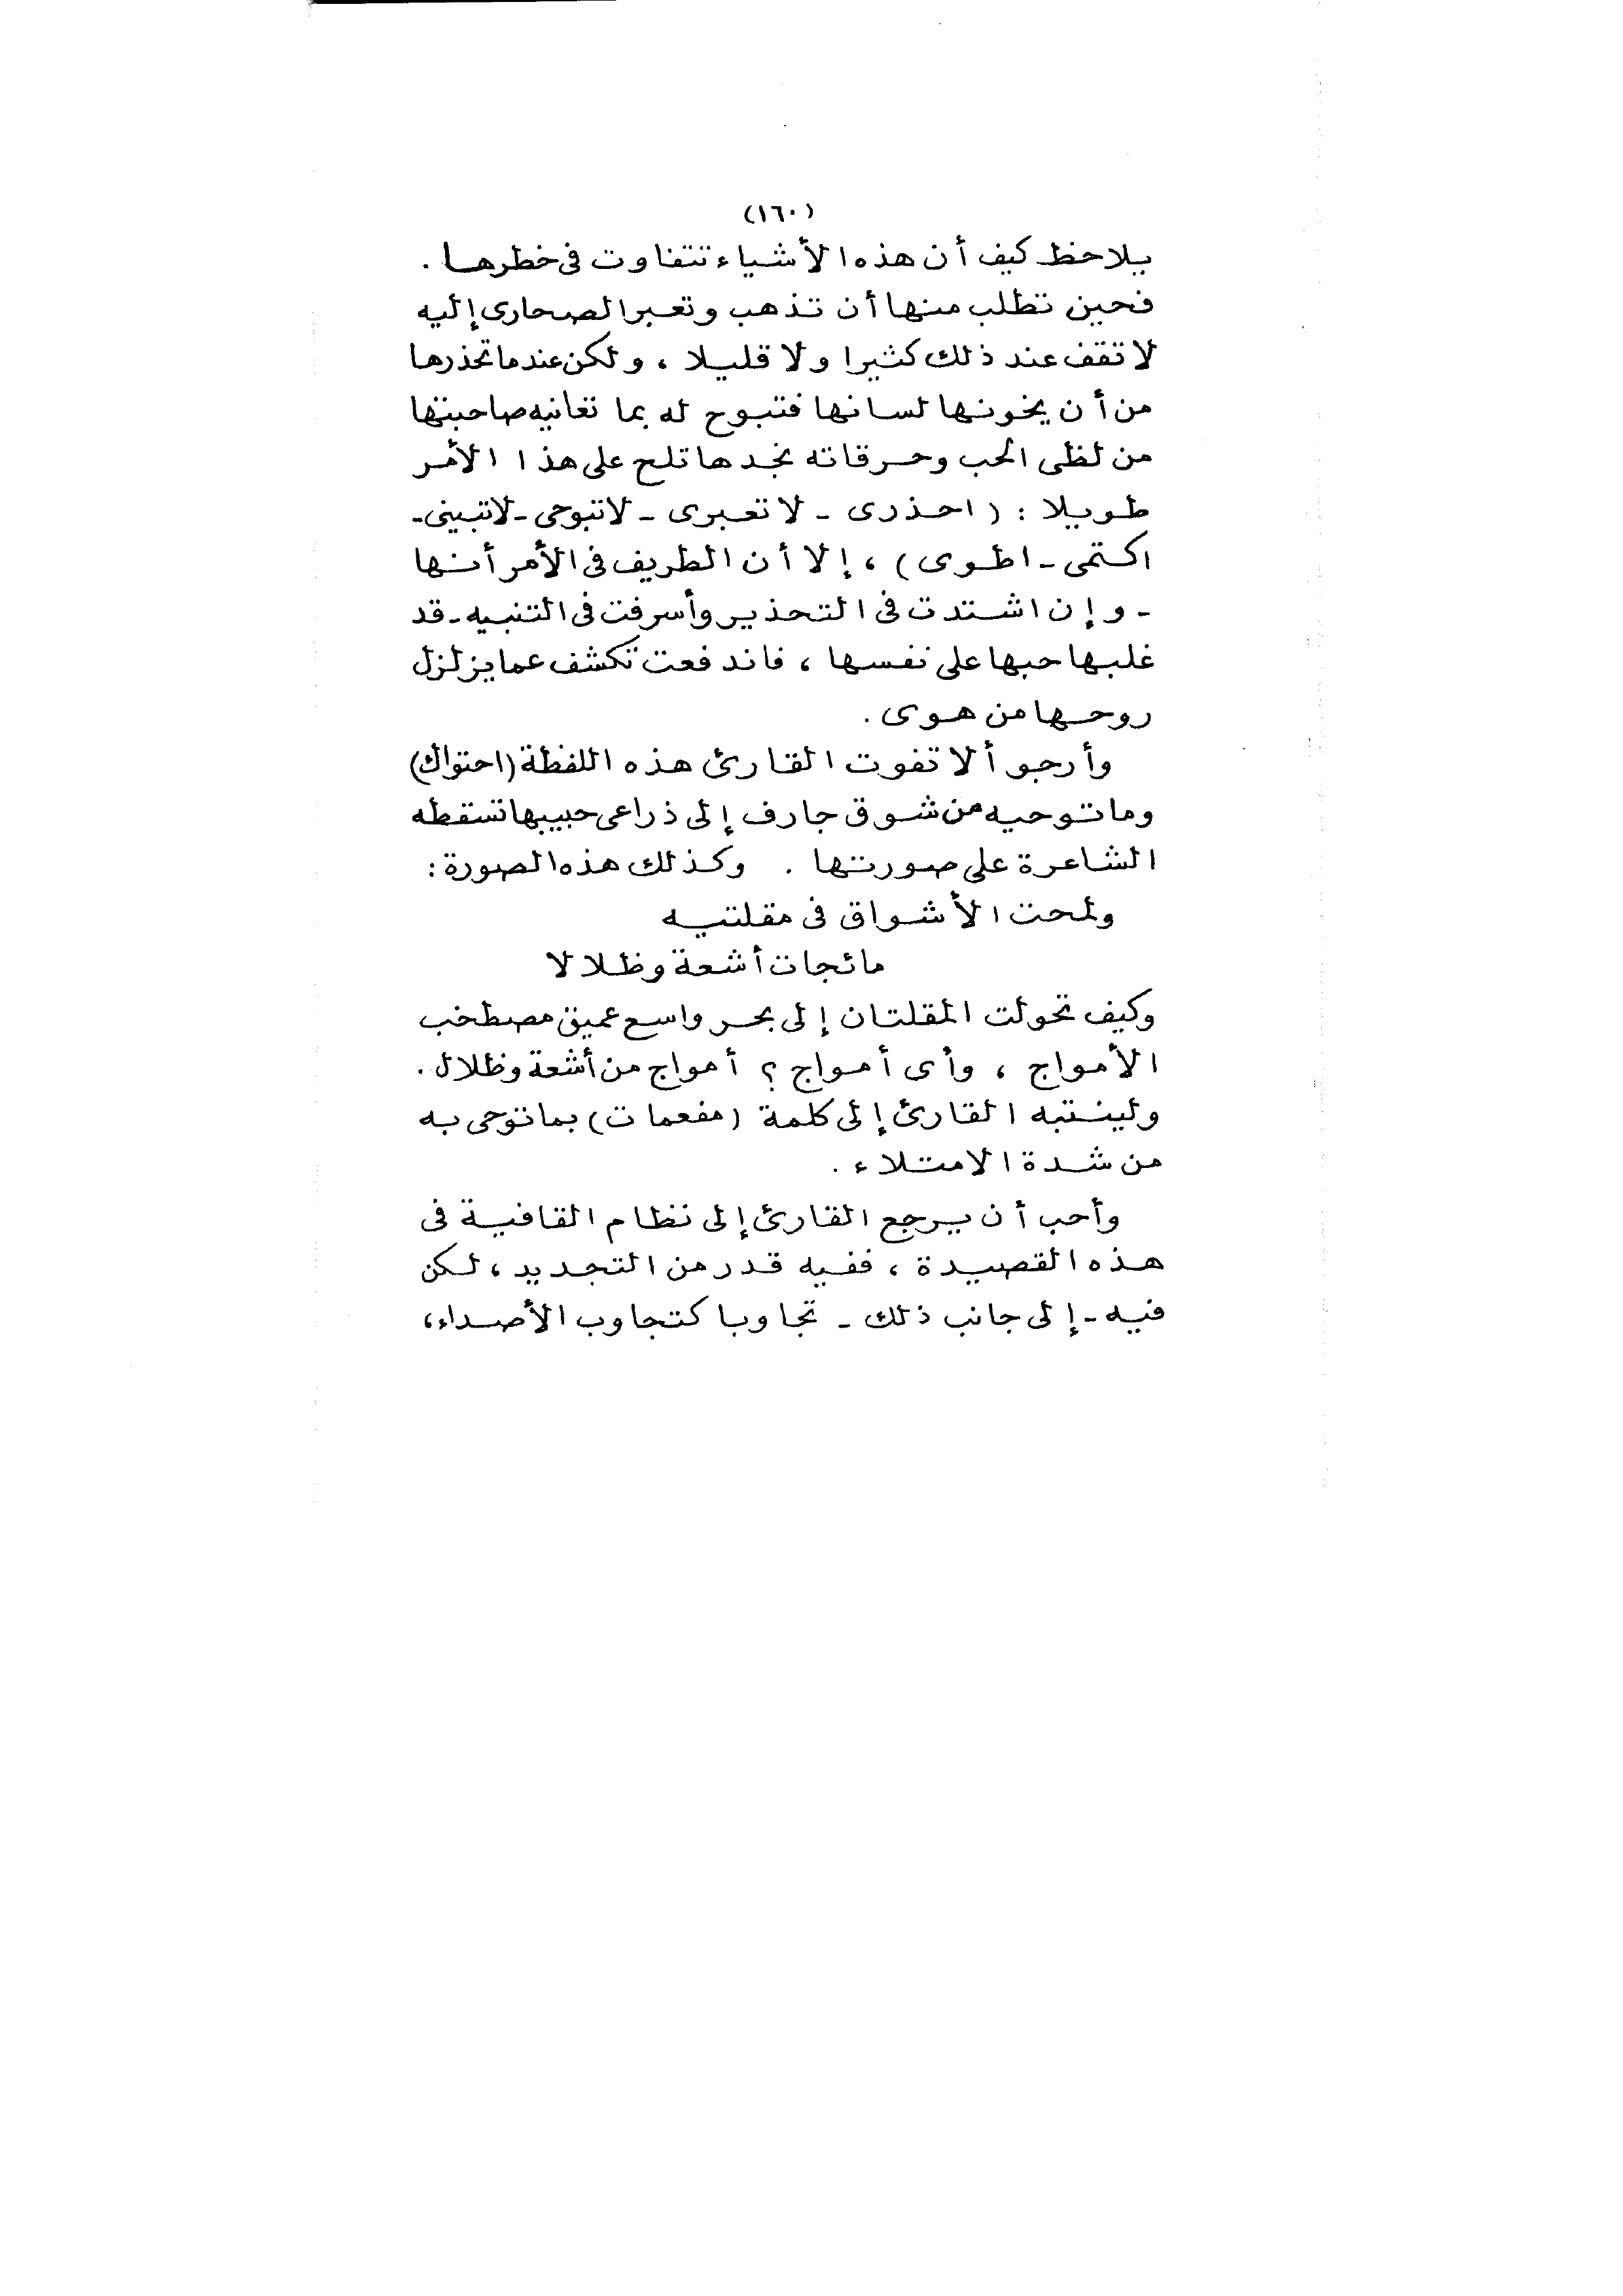 (١٦٠)
يلاحظ كيف أن هذه الأشياء تتفاوت فى خطرها .
فحين تطلب منها أن تذهب وتعبر الصحارى إليه
لا تقف عند ذلك كثيرا ولا قليلا ، ولكن عندما تحذرها
من أن يخونها لسانها فتبوح له بما تعانيه صاحبتها
من لظى الحب وحرقاته نجدها تلح على هذا الأمر
طويلا : ( احذرى - لا تعبرى - لا تبوحى - لا تبينى -
اكتمى - اطوى ) ، إلا أن الطريف فى الأمر أنها
- وإن اشتدت فى التحذير وأسرفت فى التنبيه - قد
غلبها حبها على نفسها ، فاندفعت تكشف عما يزلزل
روحها من هوى .
وأرجو ألا تفوت القارئ هذه اللفظة (احتواك)
وما توحيه من شوق جارف إلى ذراعى حبيبها تسقطه
الشاعرة على صورتها . وكذلك هذه الصورة :
ولمحت الأشواق فى مقلتيه
مائجات أشعة وظلالا
وكيف تحولت المقلتان إلى بحر واسع عميق مصطخب
الأمواج ، وأى أمواج ؟ أمواج من أشعة وظلال .
ولينتبه القارئ إلى كلمة (مفعمات) بما توحى به
من شدة الامتلاء .
وأحب أن يرجع القارئ إلى نظام القافية فى
هذه القصيدة ، ففيه قدر من التجديد ، لكن
فيه - إلى جانب ذلك - تجاوبا كتجاوب الأصداء ،